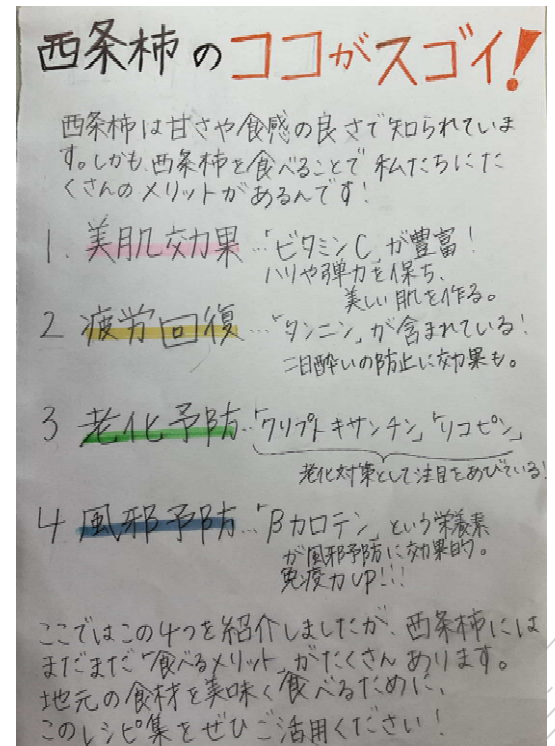 西条柿のココがスゴイ!
西条柿は甘さや食感の良さで知られていま
す。しかも、西条柿を食べることで私たちにた
くさんのメリットがあるんです!
1. 美肌効果…「ビタミンC」が豊富!
ハリや弾力を保ち、
美しい肌を作る。
2 疲労回復…「タンニン」が含まれている!
二日酔いの防止に効果も。
3 老化予防…「クリプトキサンチン」「リコピン」
老化対策として注目をあびている!
4 風邪予防…「βカロテン」という栄養素
が風邪予防に効果的。
免疫力UP!!!
ここではこの4つを紹介しましたが、西条柿には
まだまだ「食べるメリット」がたくさんあります。
地元の食材を美味く食べるために、
このレシピ集をぜひご活用ください!